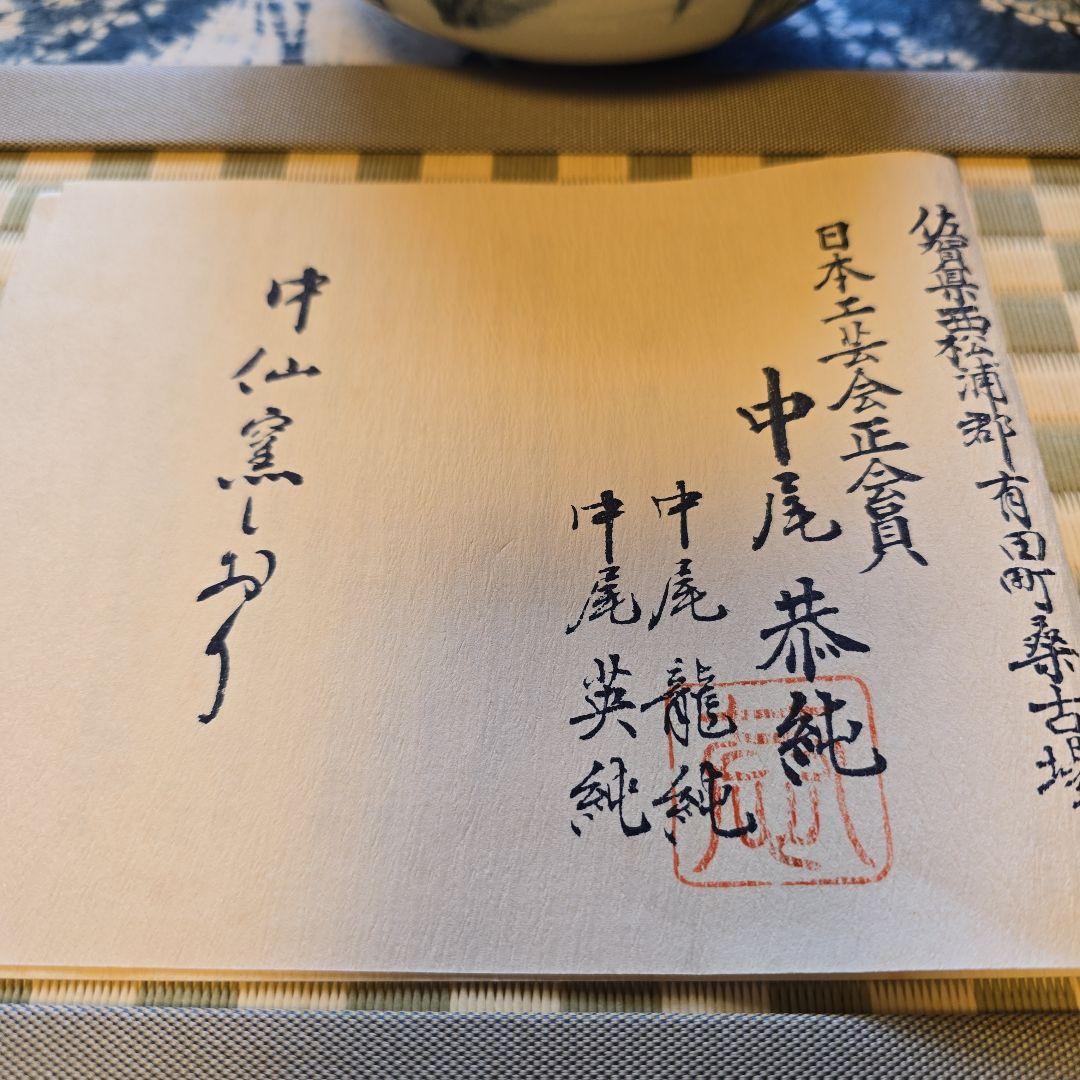 佐賀県西松浦郡有田町桑古場
日本工芸会正会員
中尾恭純
中尾龍純
中尾英純
中仙窯しおり